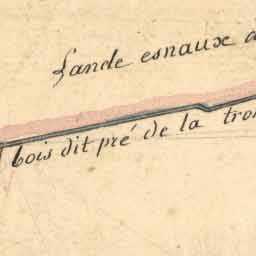 Lande esnaux d
bois dit pré de la tron